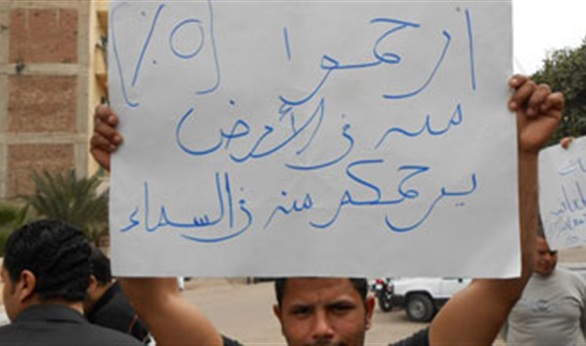 ارحموا [٥٪]
منه في الأرض
يرحمكم منه في السماء